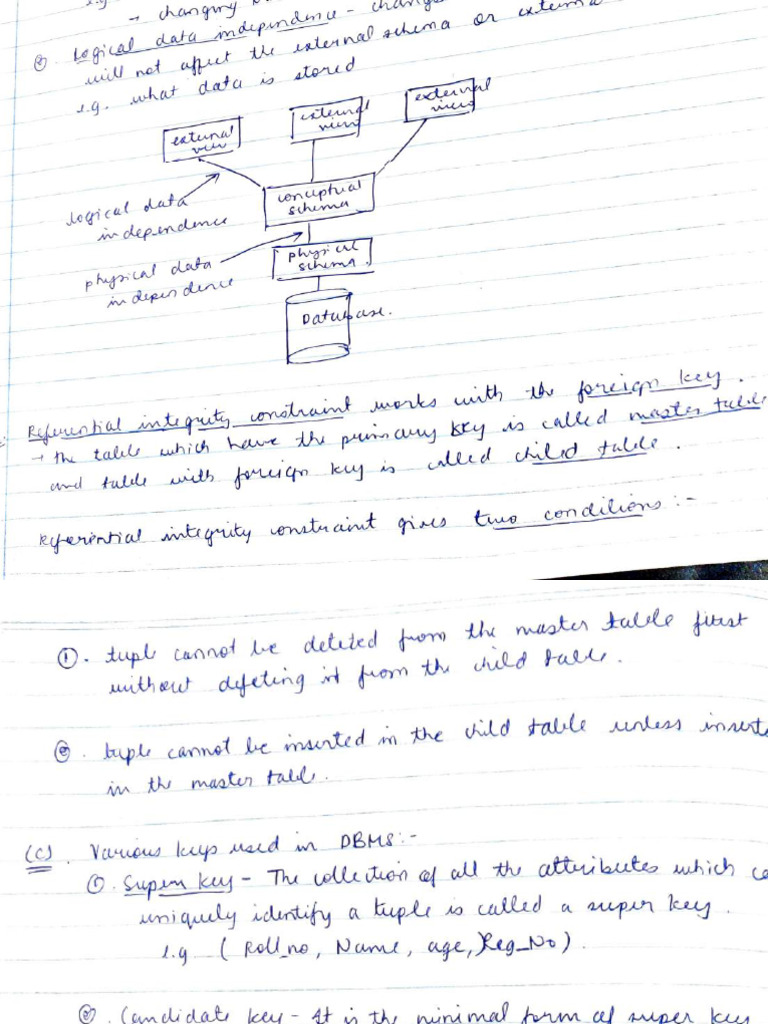 → changing
② Logical data independence - chang
will not affect the external schema or externa
e.g. what data is stored
external view
external view
external view
conceptual schema
logical data independence
physical schema
physical data independence
Database.
Referential integrity constraint works with the foreign key.
→ the table which have the primary key is called master table
and table with foreign key is called child table.
Referential integrity constraint gives two conditions :-
①. tuple cannot be deleted from the master table first
without deleting it from the child table.
②. tuple cannot be inserted in the child table unless insert
in the master table.
(C). Various keys used in DBMS:-
①. Super key - The collection of all the attributes which c
uniquely identify a tuple is called a super key.
e.g ( Roll_no, Name, age, Reg_No).
②. Candidate key - It is the minimal form of super key